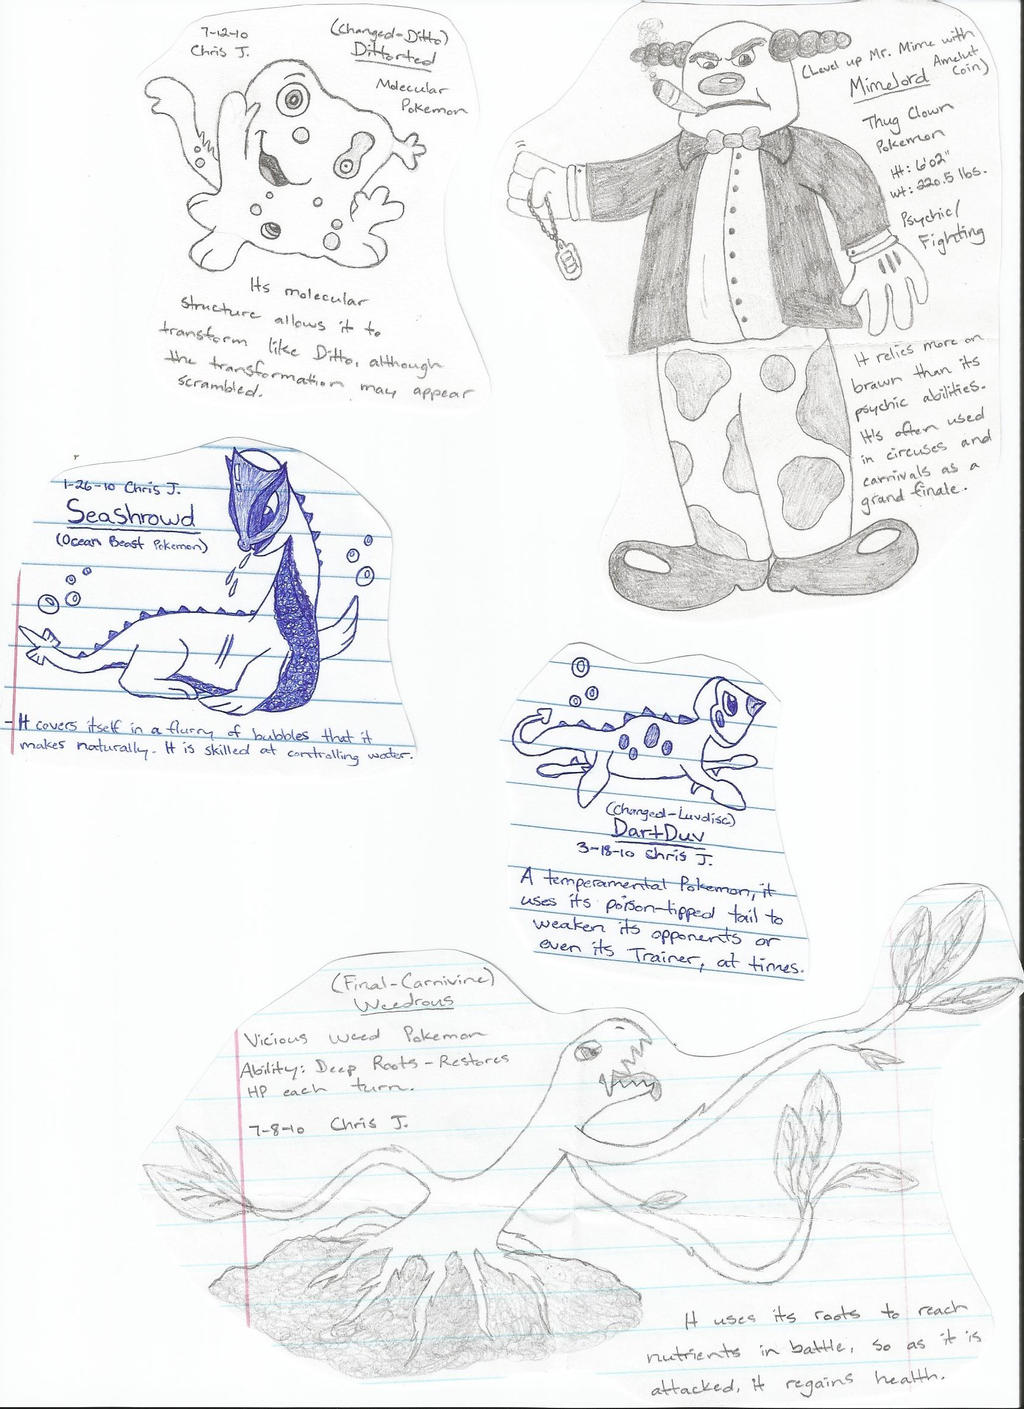 7-12-10
Chris J.
(Changed-Ditto)
Dittorted
Molecular
Pokemon
Its molecular
structure allows it to
transform like Ditto, although
the transformation may appear
scrambled.
(Level up Mr. Mime with
Amelut
Coin)
Mimelord
Thug Clown
Pokemon
Ht: 6'02"
wt: 220.5 lbs.
Psychic/
Fighting
It relies more on
brawn than its
psychic abilities.
It's often used
in circuses and
carnivals as a
grand finale.
1-26-10 Chris J.
Seashrowd
(Ocean Beast Pokemon)
- It covers itself in a flurry of bubbles that it
makes naturally. It is skilled at controlling water.
(Changed-Luvdisc)
DartDuv
3-18-10 Chris J.
A temperamental Pokemon, it
uses its poison-tipped tail to
weaken its opponents or
even its Trainer, at times.
(Final-Carnivine)
Weedrous
Vicious Weed Pokemon
Ability: Deep Roots-Restores
HP each turn.
7-8-10 Chris J.
It uses its roots to reach
nutrients in battle, so as it is
attacked, it regains health.